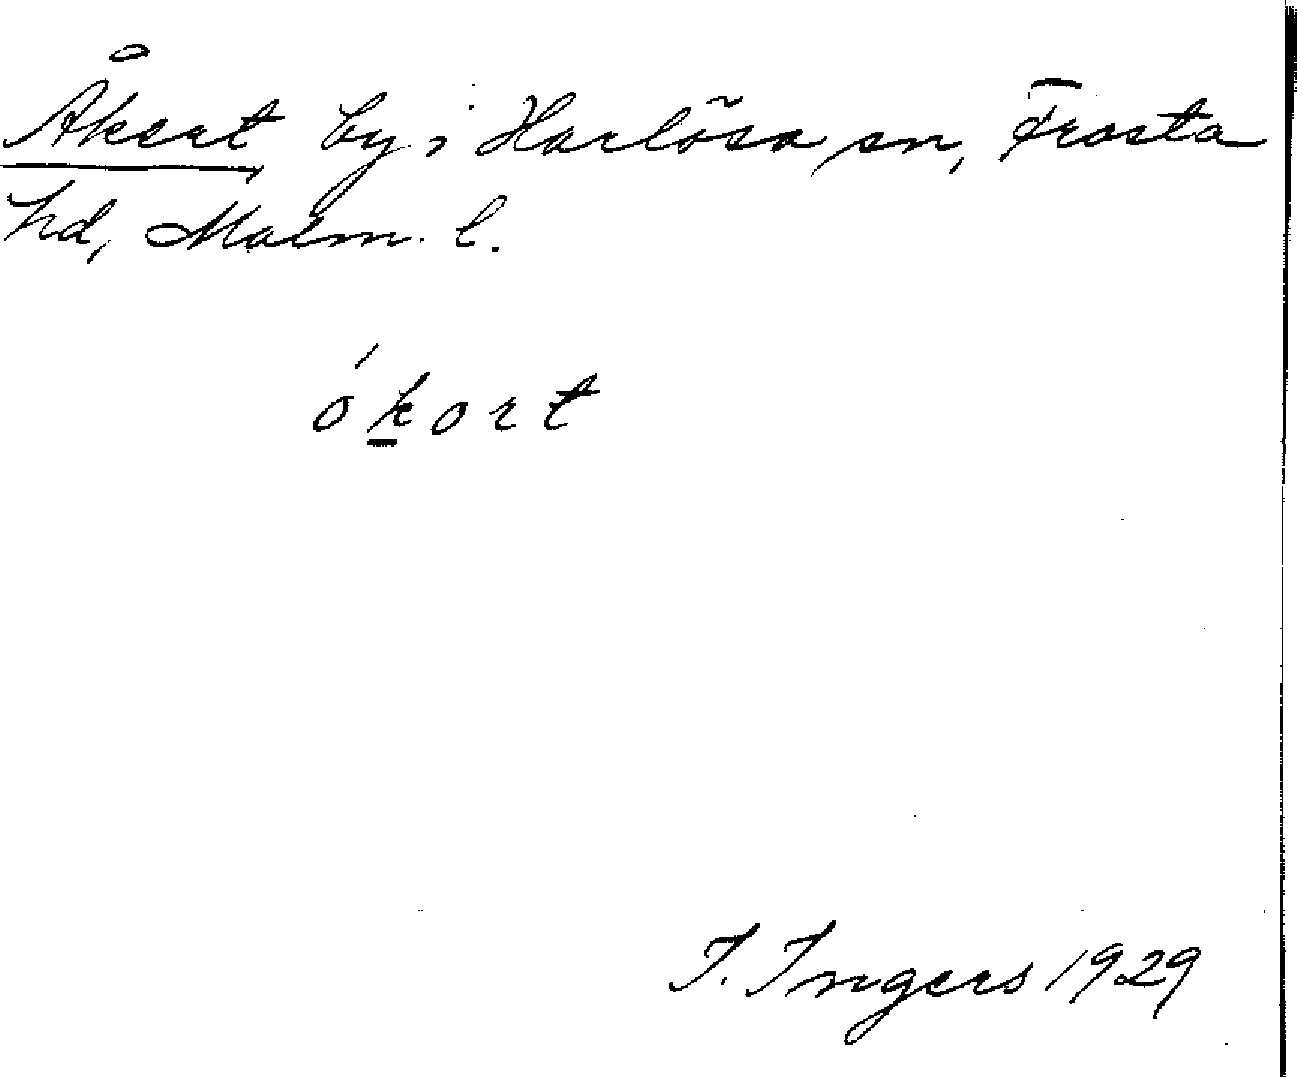 Åkert, by i Harlösa sn, Frosta
hd, Malm. l.
ókort
I. Ingers 1929